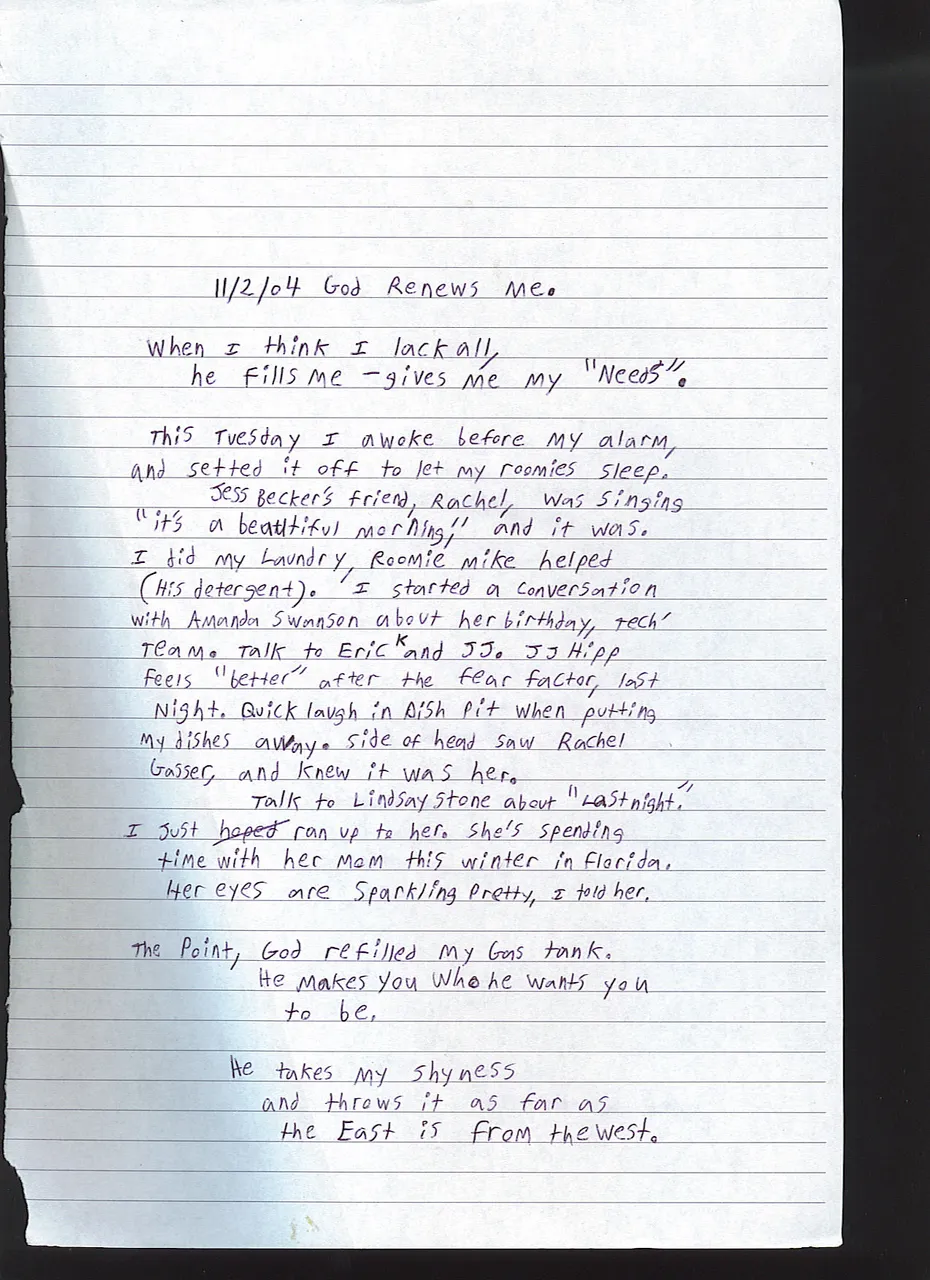 11/2/04 God Renews Me.
When I think I lack all,
he fills me - gives me my "Needs".
This Tuesday I awoke before my alarm,
and setted it off to let my roomies sleep.
Jess Becker's friend, Rachel, was singing
"it's a beautiful morning," and it was.
I did my Laundry, Roomie mike helped
(His detergent). I started a conversation
with Amanda Swanson about her birthday, Tech
Team. Talk to Eric K and JJ. JJ Hipp
feels "better" after the fear factor, last
Night. Quick laugh in Dish Pit when putting
my dishes away. side of head saw Rachel
Gasser, and knew it was her.
Talk to Lindsay Stone about "Last night."
I just hoped ran up to her. she's spending
time with her mom this winter in florida.
Her eyes are Sparkling Pretty, I told her.
The Point, God refilled my Gas tank.
He makes you who he wants you
to be.
He takes my shyness
and throws it as far as
the East is from the west.